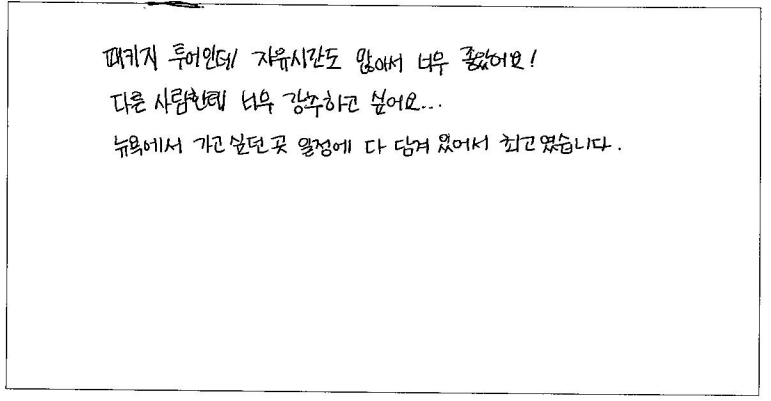 패키지 투어인데 자유시간도 많아서 너무 좋았어요!
다른 사람한테 너무 강추하고 싶어요...
뉴욕에서 가고싶던 곳 일정에 다 담겨 있어서 최고였습니다.